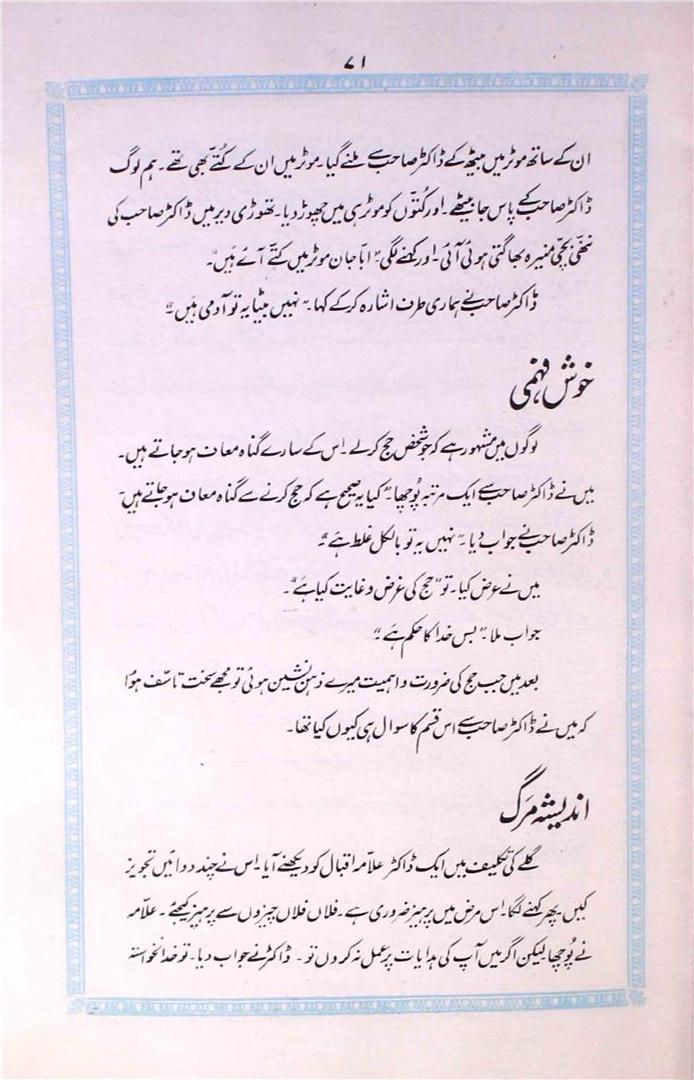 ۷۱
ان کے ساتھ موٹر میں بیٹھ کے ڈاکٹر صاحب سے ملنے گیا۔ موٹر میں ان کے کُتّے بھی تھے۔ ہم لوگ
ڈاکٹر صاحب کے پاس جا بیٹھے۔ اور کُتّوں کو موٹر ہی میں چھوڑ دیا۔ تھوڑی دیر میں ڈاکٹر صاحب کی
ننھی بچّی منیرہ بھاگتی ہوئی آئی۔ اور کہنے لگی "ابّا جان موٹر میں کتّے آئے ہیں"۔
ڈاکٹر صاحب نے ہماری طرف اشارہ کر کے کہا۔ "نہیں بیٹا یہ تو آدمی ہیں"۔
خوش فہمی
لوگوں میں مشہور ہے کہ جو شخص حج کرلے۔ اس کے سارے گناہ معاف ہو جاتے ہیں۔
میں نے ڈاکٹر صاحب سے ایک مرتبہ پُوچھا۔ "کیا یہ صحیح ہے کہ حج کرنے سے گناہ معاف ہو جاتے ہیں"
ڈاکٹر صاحب نے جواب دیا۔ "نہیں یہ تو بالکل غلط ہے"۔
میں نے عرض کیا۔ تو "حج کی غرض و غایت کیا ہے"۔
جواب ملا۔ "بس خدا کا حکم ہے"۔
بعد میں جب حج کی ضرورت و اہمیت میرے ذہن نشین ہوئی تو مجھے سخت تاسّف ہوُا
کہ میں نے ڈاکٹر صاحب سے اس قسم کا سوال ہی کیوں کیا تھا۔
اندیشہ مَرگ
گلے کی تکلیف میں ایک ڈاکٹر علاّمہ اقبال کو دیکھنے آیا۔ اس نے چند دوائیں تجویز
کیں پھر کہنے لگا۔ اس مرض میں پرہیز ضروری ہے۔ فلاں فلاں چیزوں سے پرہیز کیجئے۔ علاّمہ
نے پُوچھا لیکن اگر میں آپ کی ہدایات پر عمل نہ کروں تو۔ ڈاکٹر نے جواب دیا۔ تو خدانخواستہ